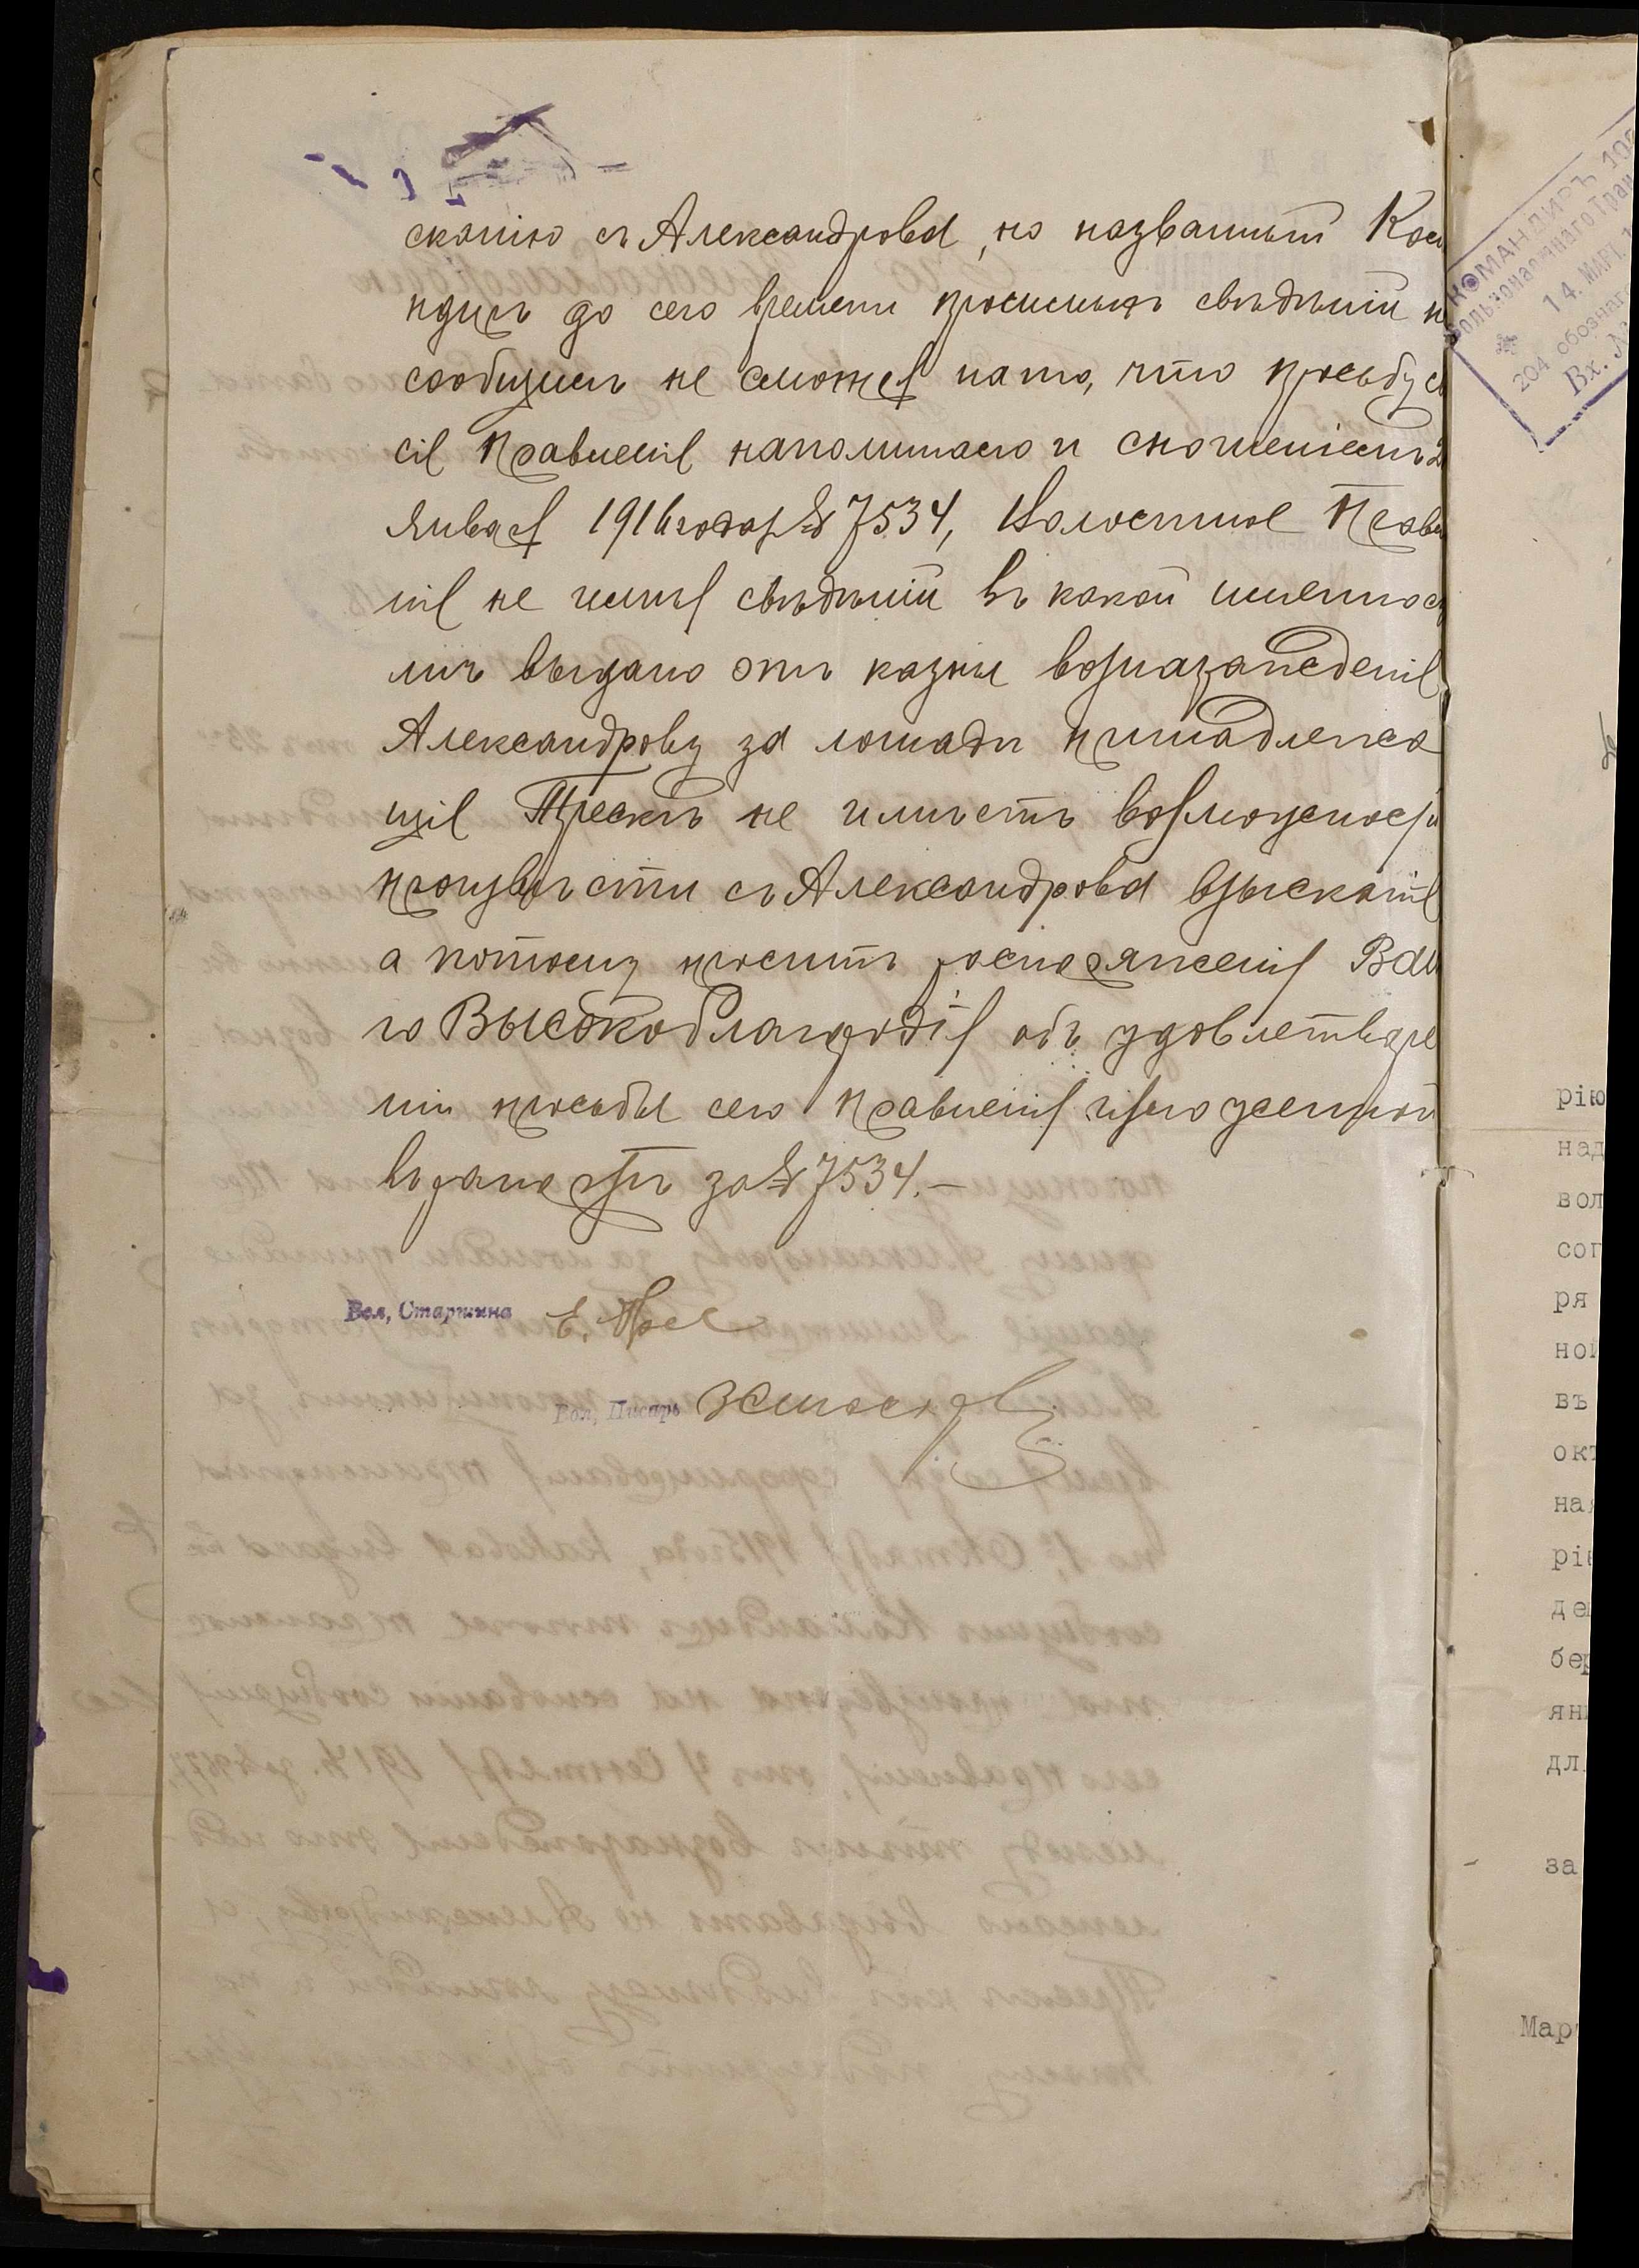 сканію съ Александрова, но названный Ком
ндиръ до сего времени просимыхъ свѣдѣній н
сообщилъ не смотря на то, что просьбу с
сіе Правленіе напоминало и сношеніемъ 2
Января 1916 года за № 7534, Волостное Правл
ніе не имѣя свѣдѣній въ какой именно су
мѣ выдано отъ казны вознагражденіе
Александрову за лошади принадлежа
щіе Тресъ не имѣетъ возможности
произвѣсти съ Александрова взысканіе
а потому проситъ распоряженія Ваш
го Высокоблагородія объ удовлетворе
ніи просьбы сего Правленія изложенной
въ запискѣ за № 7534.—
Вол. Старшина Е. Трес
Вол. Писарь
КОМАНДИРЪ 10
14. МАР. 1
204 обознаг
Вх. №
рію
над
вол
сог
ря
ной
въ
окт
на
рі
де
бер
янв
дл
за
Мар